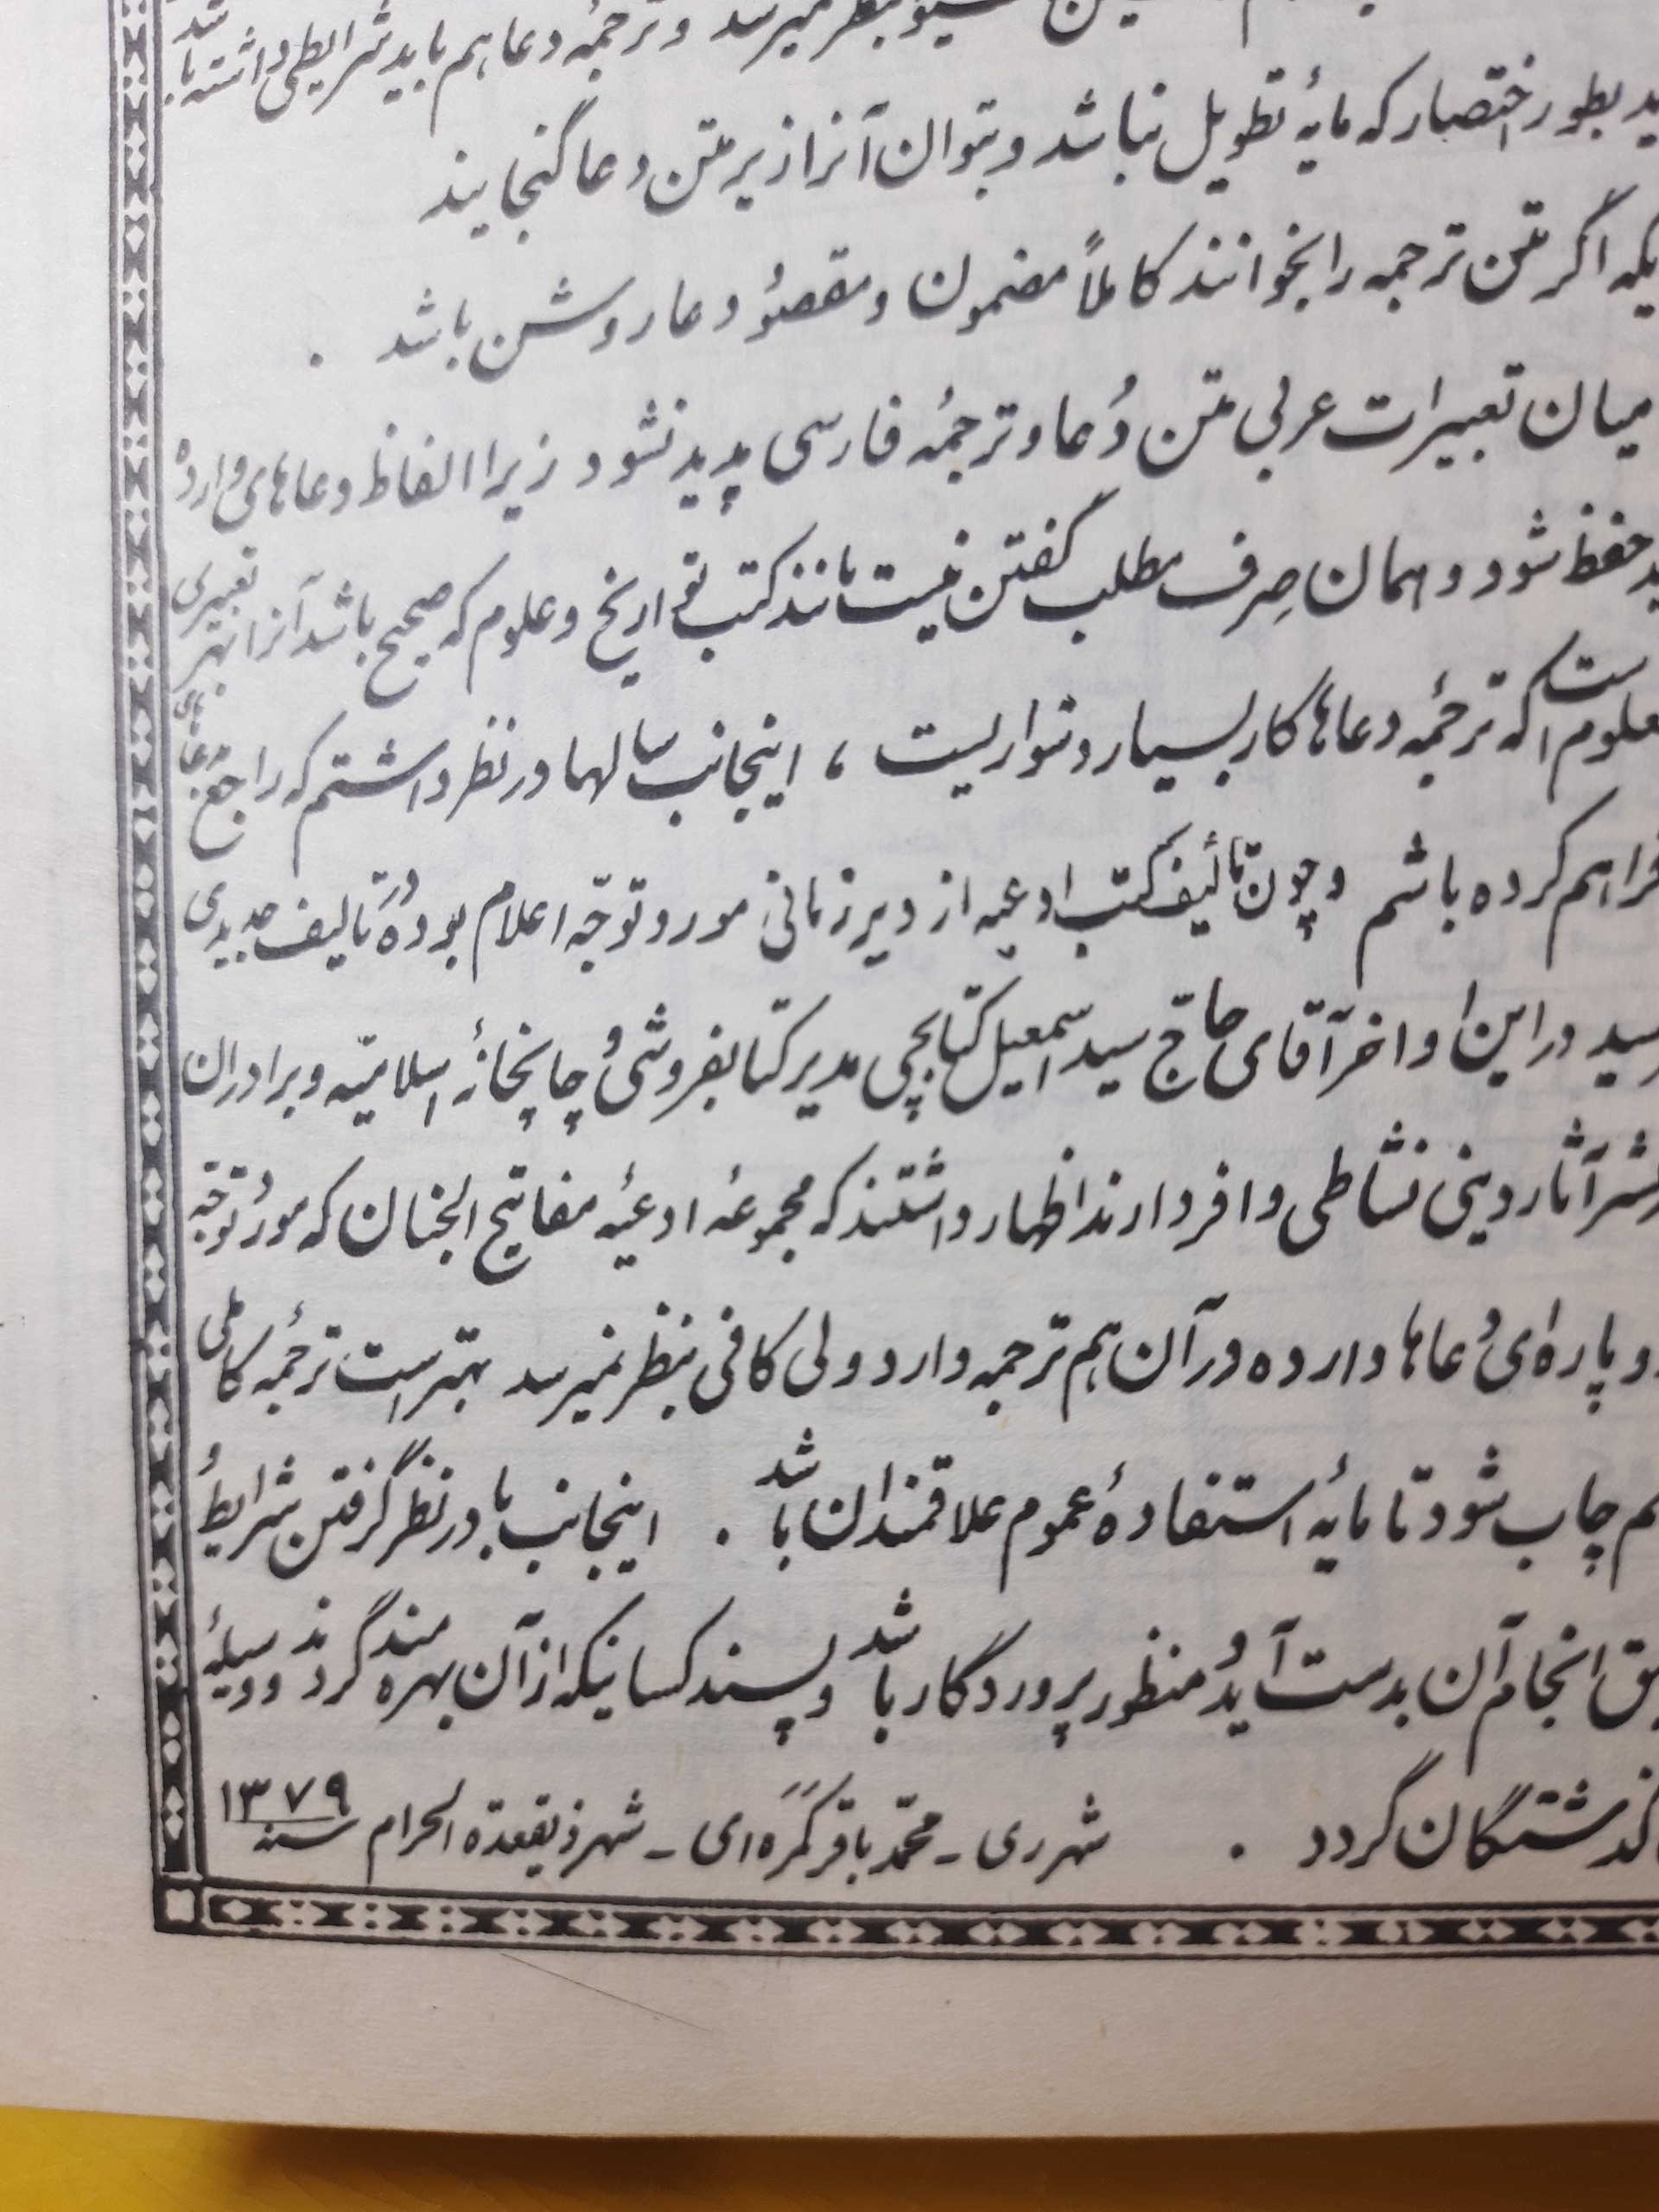 بنظر میرسد و ترجمهٔ دعا هم باید شرایطی داشته باشد
بطور اختصار که مایهٔ تطویل نباشد و بتوان آنرا زیر متن دعا گنجایند
اگر متن ترجمه را بخوانند کاملاً مضمون و مقصود دعا روشن باشد .
میان تعبیرات عربی متن دُعا و ترجمهٔ فارسی پدید نشود زیرا الفاظ دعاهای وارده
حفظ شود و همان صِرف مطلب گفتن نیست مانند کتب تواریخ و علوم که صحیح باشد آنرا بهر تعبیری
معلوم است که ترجمهٔ دعاها کار بسیار دشواریست ، اینجانب سالها در نظر داشتم که راجع
فراهم کرده باشم و چون تألیف کتب ادعیه از دیر زمانی مورد توجّه اعلام بوده و در تألیف جدیدی
در این اواخر آقای حاجّ سید اسمعیل کتابچی مدیر کتابفروشی و چاپخانهٔ اسلامیّه و برادران
نشر آثار دینی نشاطی وافر دارند اظهار داشتند که مجموعهٔ ادعیهٔ مفاتیح الجنان که مورد توجّه
و پاره‌ای دُعاها وارده در آن هم ترجمه دارد ولی کافی بنظر نمیرسد بهتر است ترجمهٔ کاملی
چاپ شود تا مایهٔ استفادهٔ عموم علاقمندان باشد . اینجانب با در نظر گرفتن شرایط
انجام آن بدست آید و منظور پروردگار باشد و پسند کسانیکه از آن بهره‌مند گردند و وسیلهٔ
گذشتگان گردد . شهر ری ـ محمّد باقر کمَره‌ای ـ شهر ذیقعدة الحرام سنه ۱۳۷۹